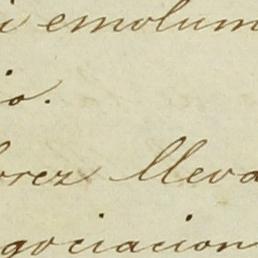 i emolum
io.
orez lleva
gociacion